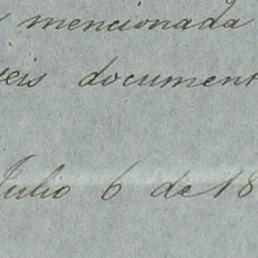 mencionada
seis document
Julio 6 de 18